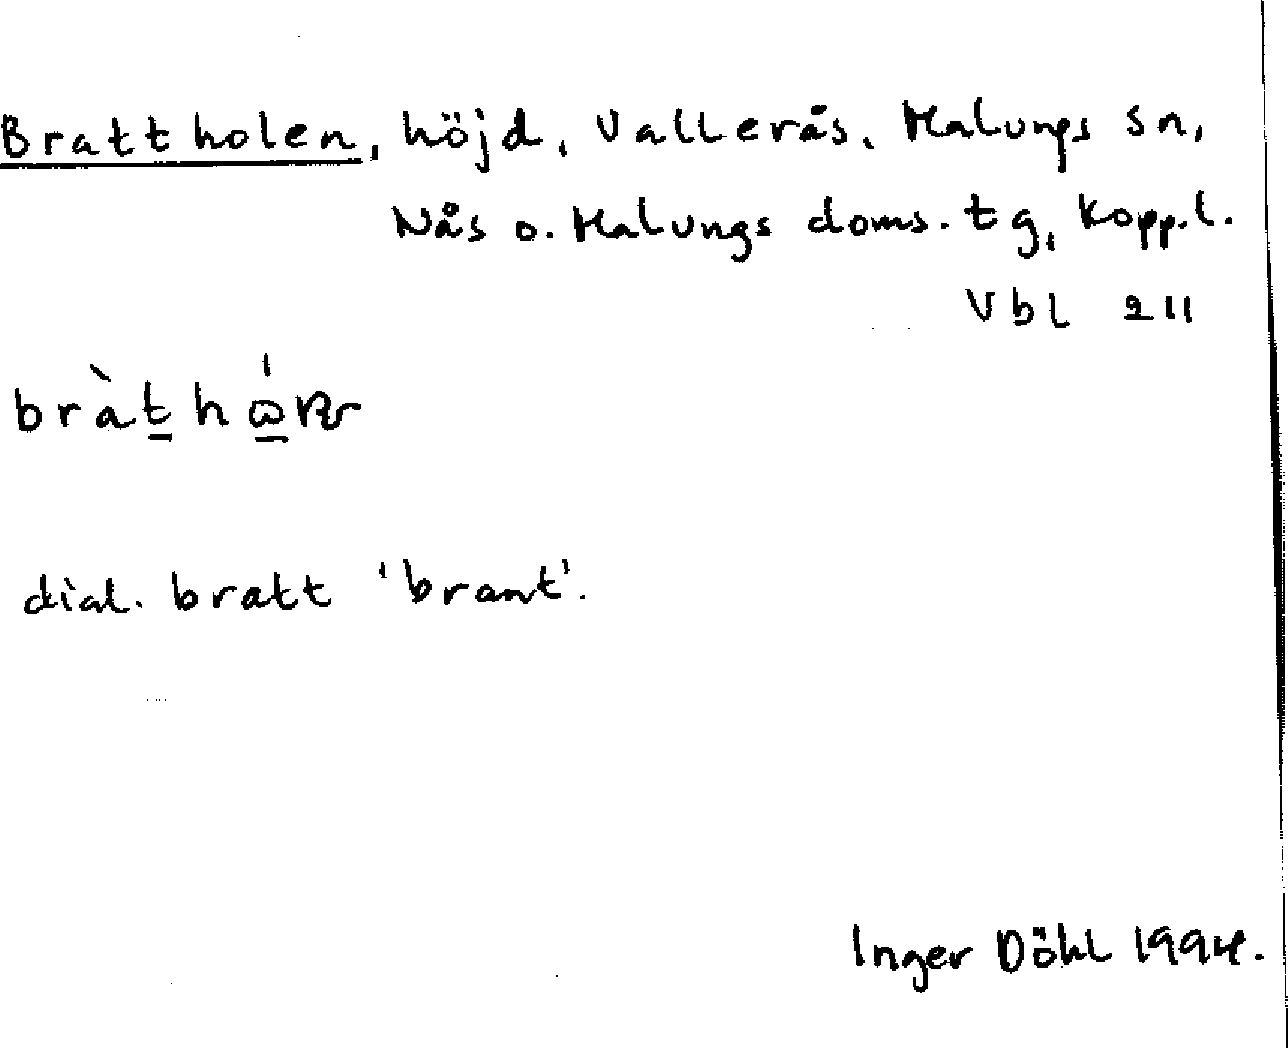 Brattholen, höjd, Vallerås, Malungs sn,
Nås o. Malungs doms. tg, Kopp.l.
Vbl 211
dial. bratt 'brant'.
Inger Döhl 1994.